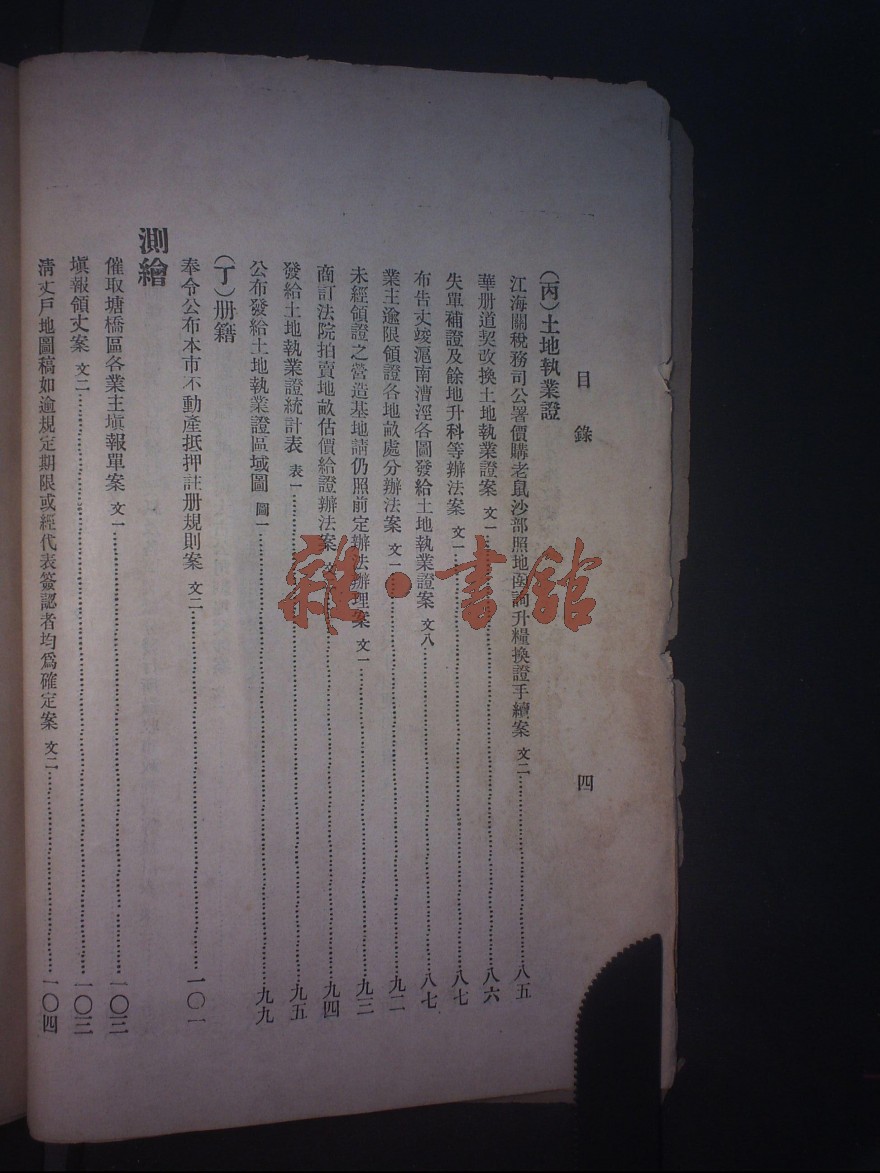 目錄 四
(丙)土地執業證
江海關稅務司公署價購老鼠沙部照地函詢升糧換證手續案 文二……八五
華册道契改換土地執業證案 文一……八六
失單補證及餘地升科等辦法案 文一……八七
布告丈竣滬南漕涇各圖發給土地執業證案 文八……八七
業主逾限領證各地畝處分辦法案 文一……九二
未經領證之營造基地請仍照前定辦法辦理案 文一……九三
商訂法院拍賣地畝估價給證辦法案……九四
發給土地執業證統計表 表一……九五
公布發給土地執業證區域圖 圖一……九九
(丁)册籍
奉令公布本市不動產抵押註册規則案 文二……一〇一
測繪
催取塘橋區各業主塡報單案 文一……一〇三
塡報領丈案 文二……一〇三
清丈戶地圖稿如逾規定期限或經代表簽認者均爲確定案 文二……一〇四
雜·書館